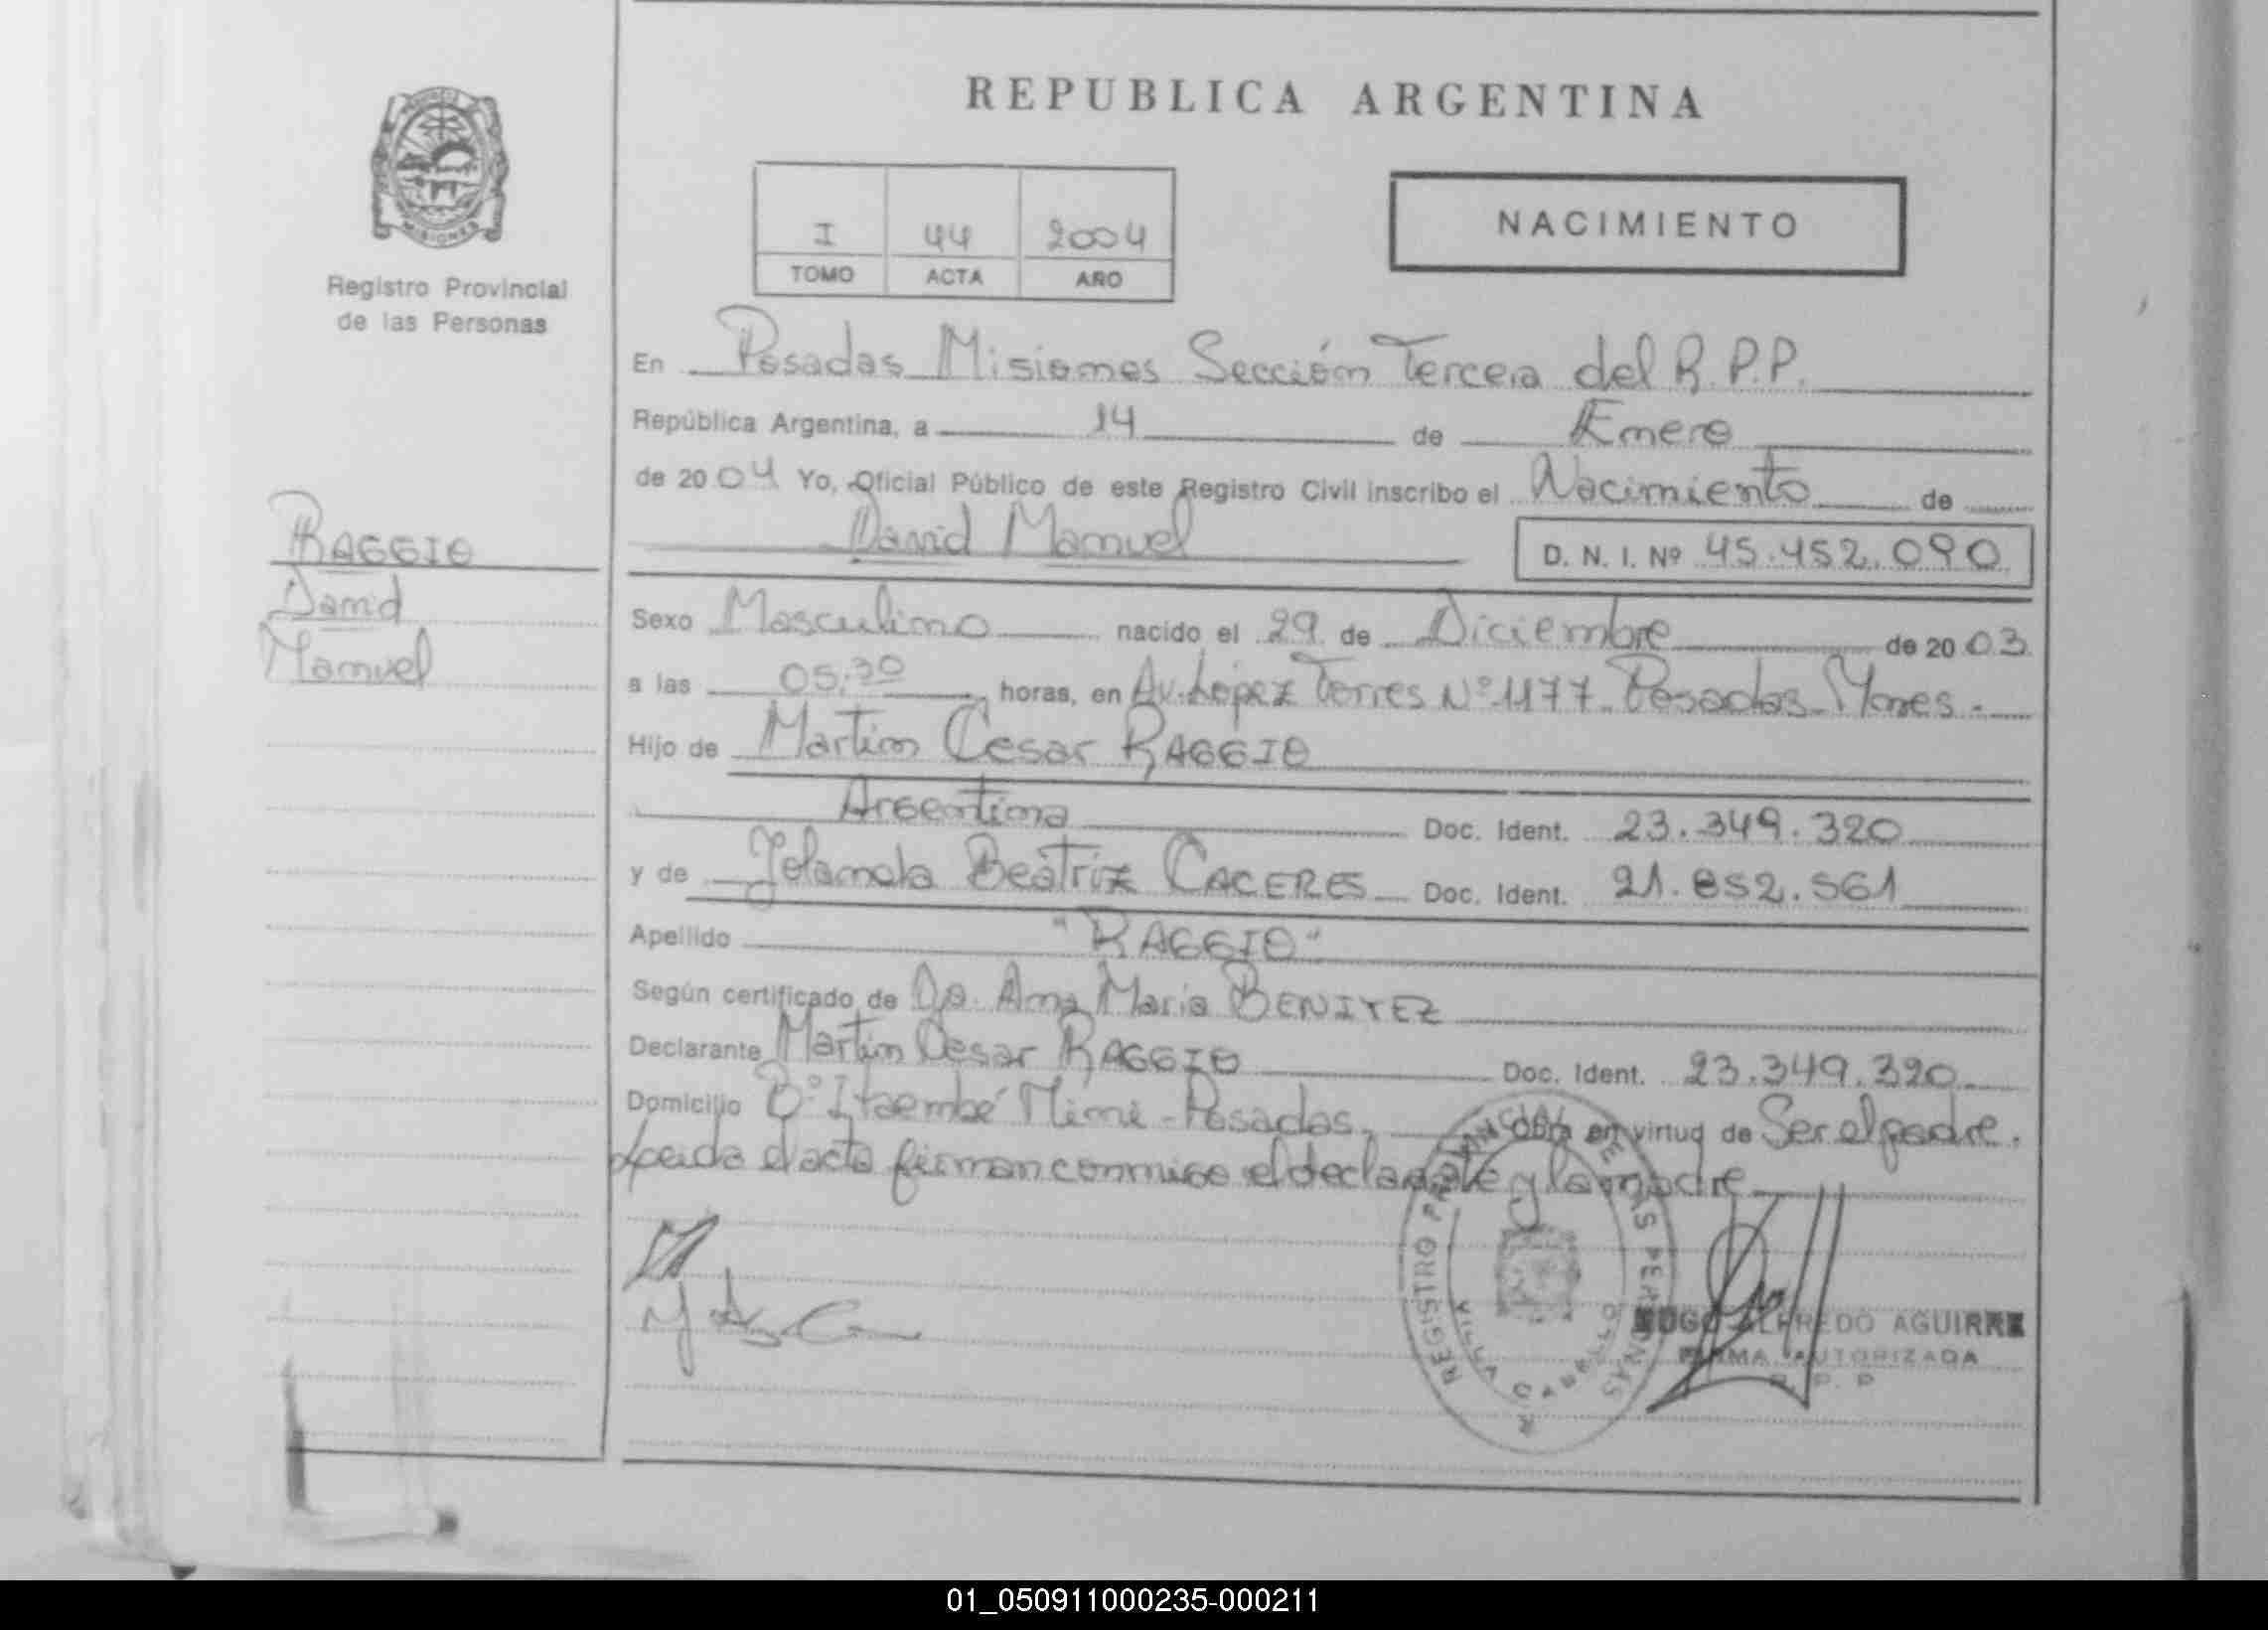 REPUBLICA ARGENTINA
PROVINCIA
MISIONES
Registro Provincial
de las Personas
I 44 2004
TOMO ACTA AÑO
NACIMIENTO
En Posadas Misiones Sección Tercera del R.P.P.
República Argentina, a 14 de Enero
de 2004 Yo, Oficial Público de este Registro Civil inscribo el Nacimiento de
David Manuel D. N. I. Nº 45.452.090
RAGGIO
David
Manuel
Sexo Masculino nacido el 29 de Diciembre de 2003
a las 05:30 horas, en Av. López Torres Nº 1177. Posadas Mnes.
Hijo de Martin Cesar RAGGIO
Argentina Doc. Ident. 23.349.320
y de Yolanda Beatriz CACERES Doc. Ident. 21.852.561
Apellido "RAGGIO"
Según certificado de Dra. Ana Maria BENITEZ
Declarante Martin Cesar RAGGIO Doc. Ident. 23.349.320
Domicilio Bº Itaembé Mini - Posadas. Obra en virtud de Ser el padre.
Leida el acta firman conmigo el declarante y la madre
REGISTRO PROVINCIAL DE LAS PERSONAS
VILLA CABELLO
HUGO ALFREDO AGUIRRE
FIRMA AUTORIZADA
R. P. P
01_050911000235-000211